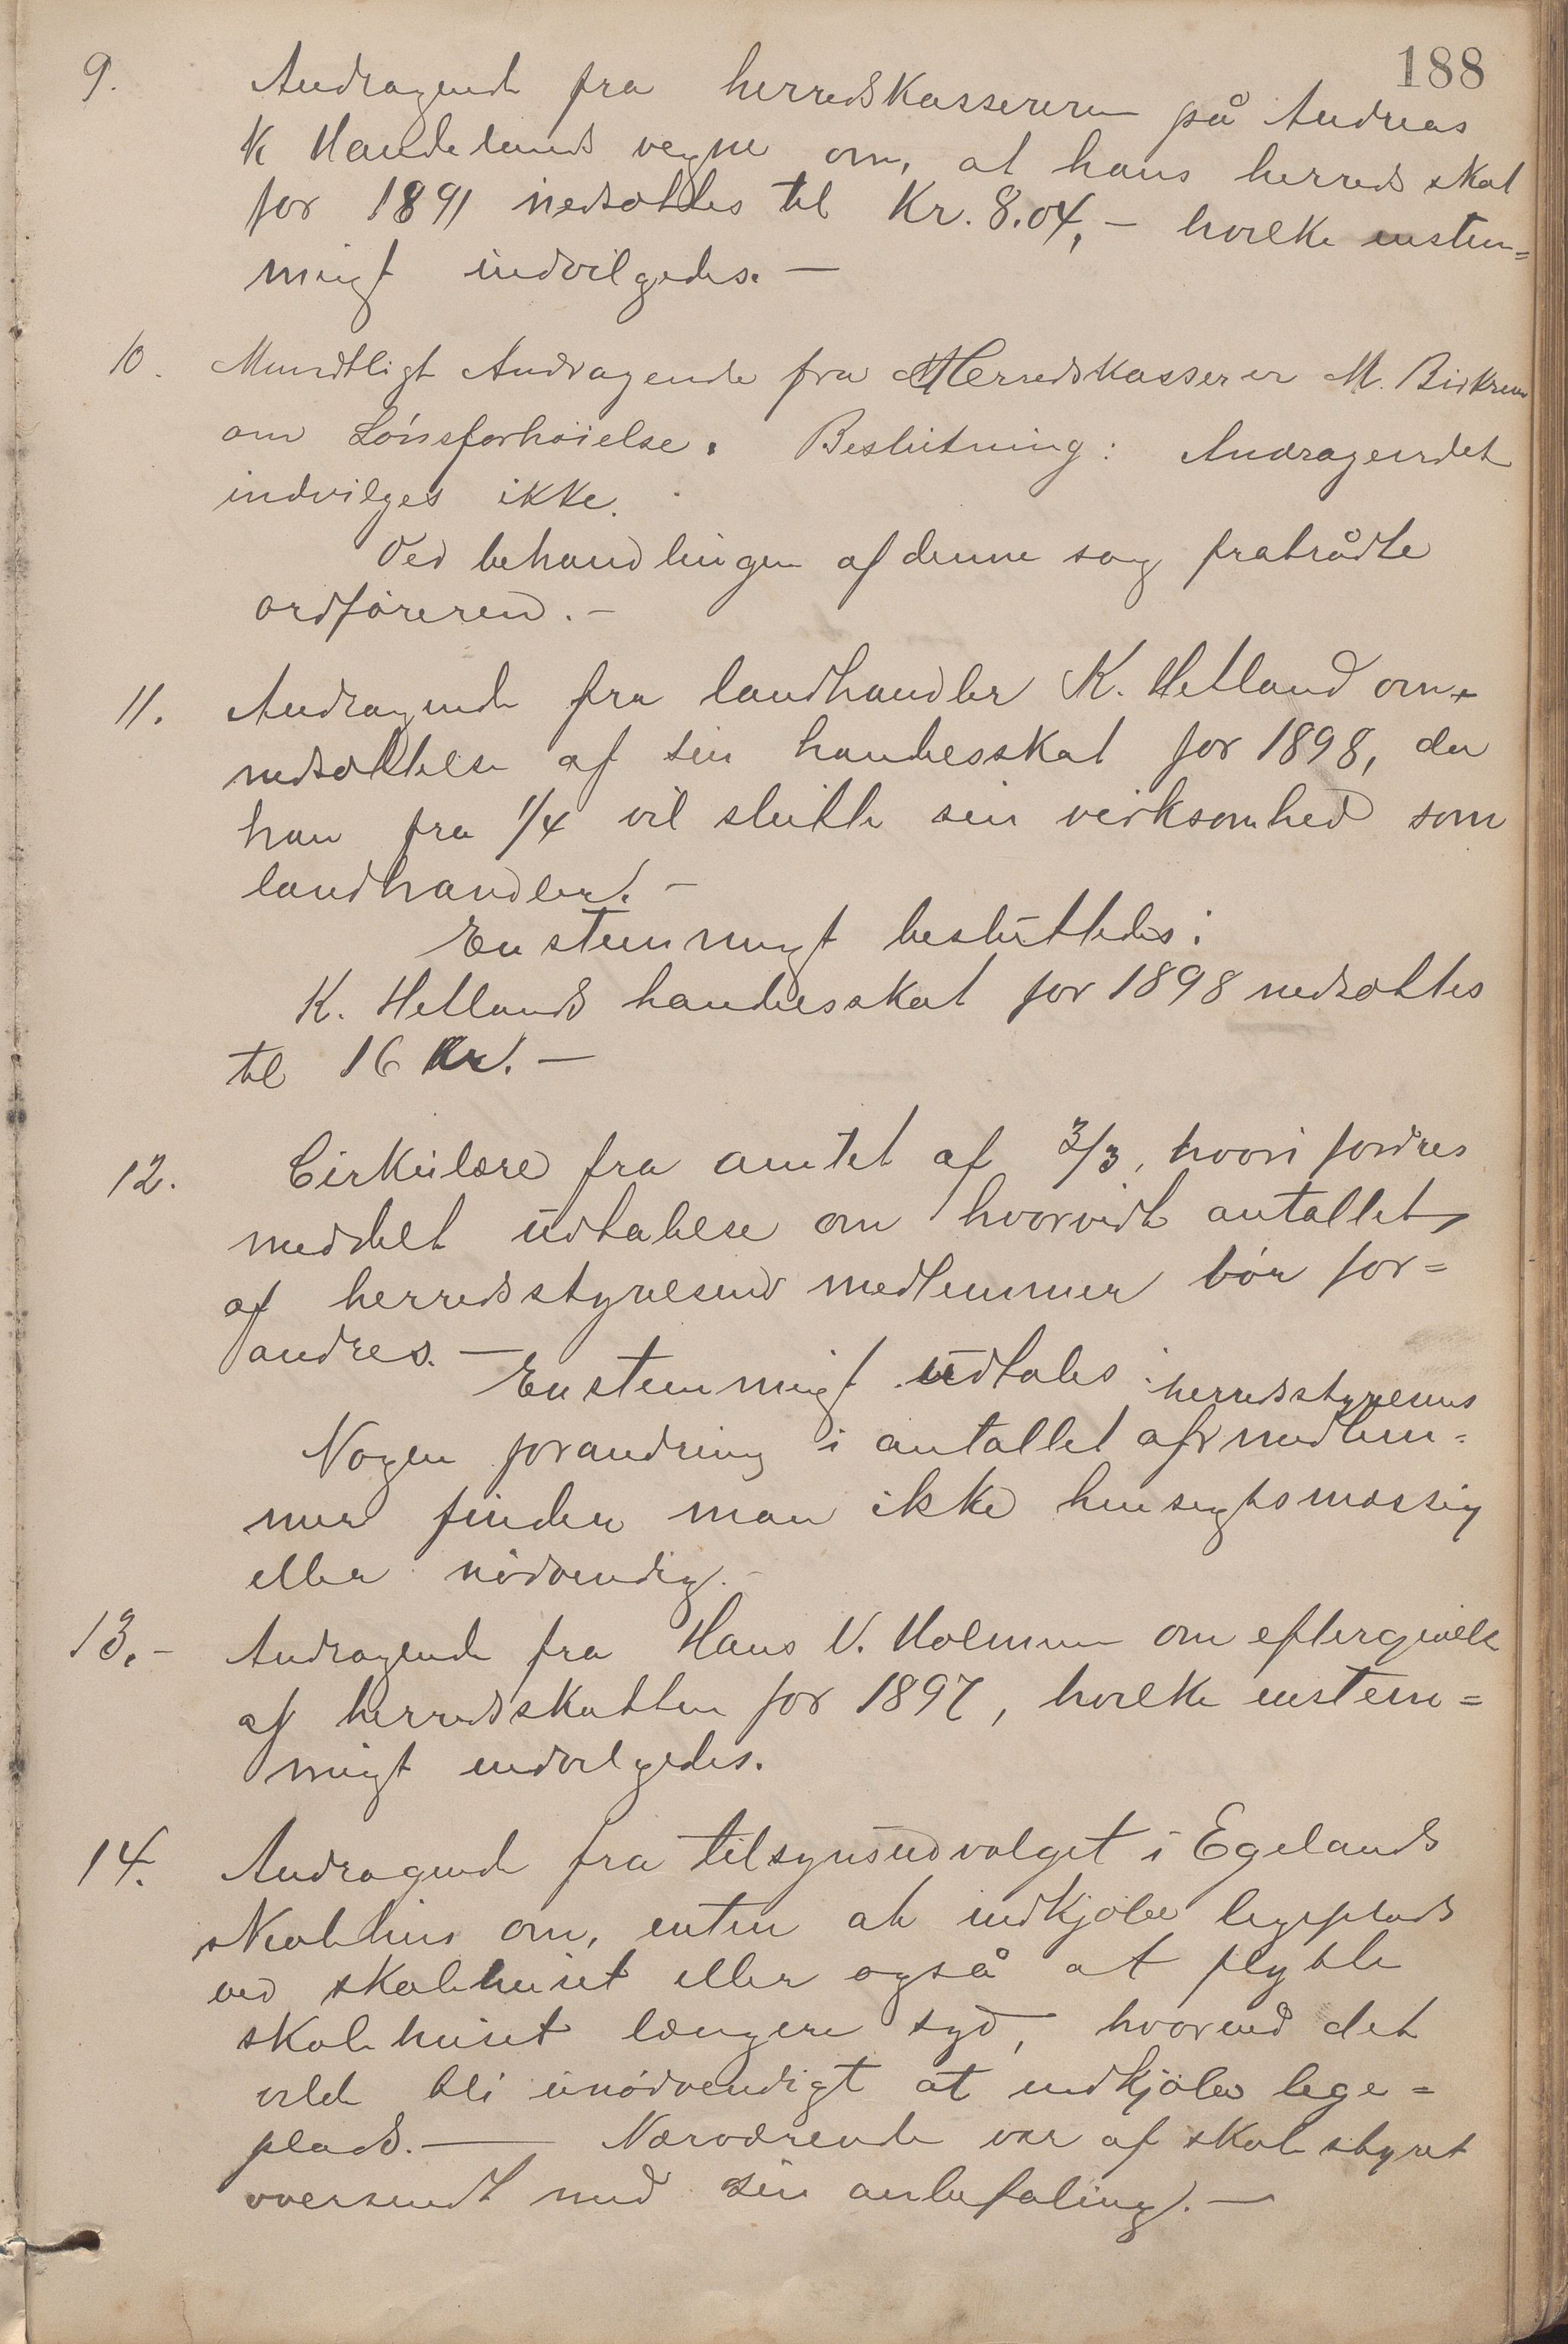 188
9. Andragende fra herredskassereren på Andreas
K Haudelands vegne om, at hans herredsskat
for 1891 nedsættes til Kr. 8.04, – hvilke enstem=
migt indvilgedes. –
10. Mundtligt Andragende fra Herredskasserer M. Birkrem
om Lónsforhöielse. Beslutning: Andragendet
indvilges ikke.
Ved behandlingen af denne sag fratrådte
ordföreren. –
11. Andragende fra landhandler K. Hetland om
nedsættelse af sin handelsskat for 1898, da
han fra 1/4 vil slutte sin virksomhed som
landhandler. –
Enstemmigt besluttedes:
K. Hetlands handelsskat for 1898 nedsættes
til 16 Kr. –
12. Cirkulære fra amtet af 3/3, hvori fordres
meddelt udtalelse om hvorvidt antallet
af herredsstyrelsens medlemmer bör for=
andres. –
Enstemmigt udtales:
Nogen forandring i antallet af herredsstyrelsens medlem=
mer finder man ikke hensigtsmæssig
eller nödvendig. –
13. – Andragende fra Hans V. Holmen om eftergivelse
af herredsskatten for 1897, hvilke enstem=
migt indvilgedes.
14. Andragende fra tilsynsudvalget i Egelands
skolehus om, enten at indkjöbe legeplads
ved skolehuset eller også at flytte
skolehuset længere syd, hvorved det
vilde bli unödvendigt at indkjöbe lege=
plads. — Nærværende var af skolestyret
oversendt med sin anbefaling. –